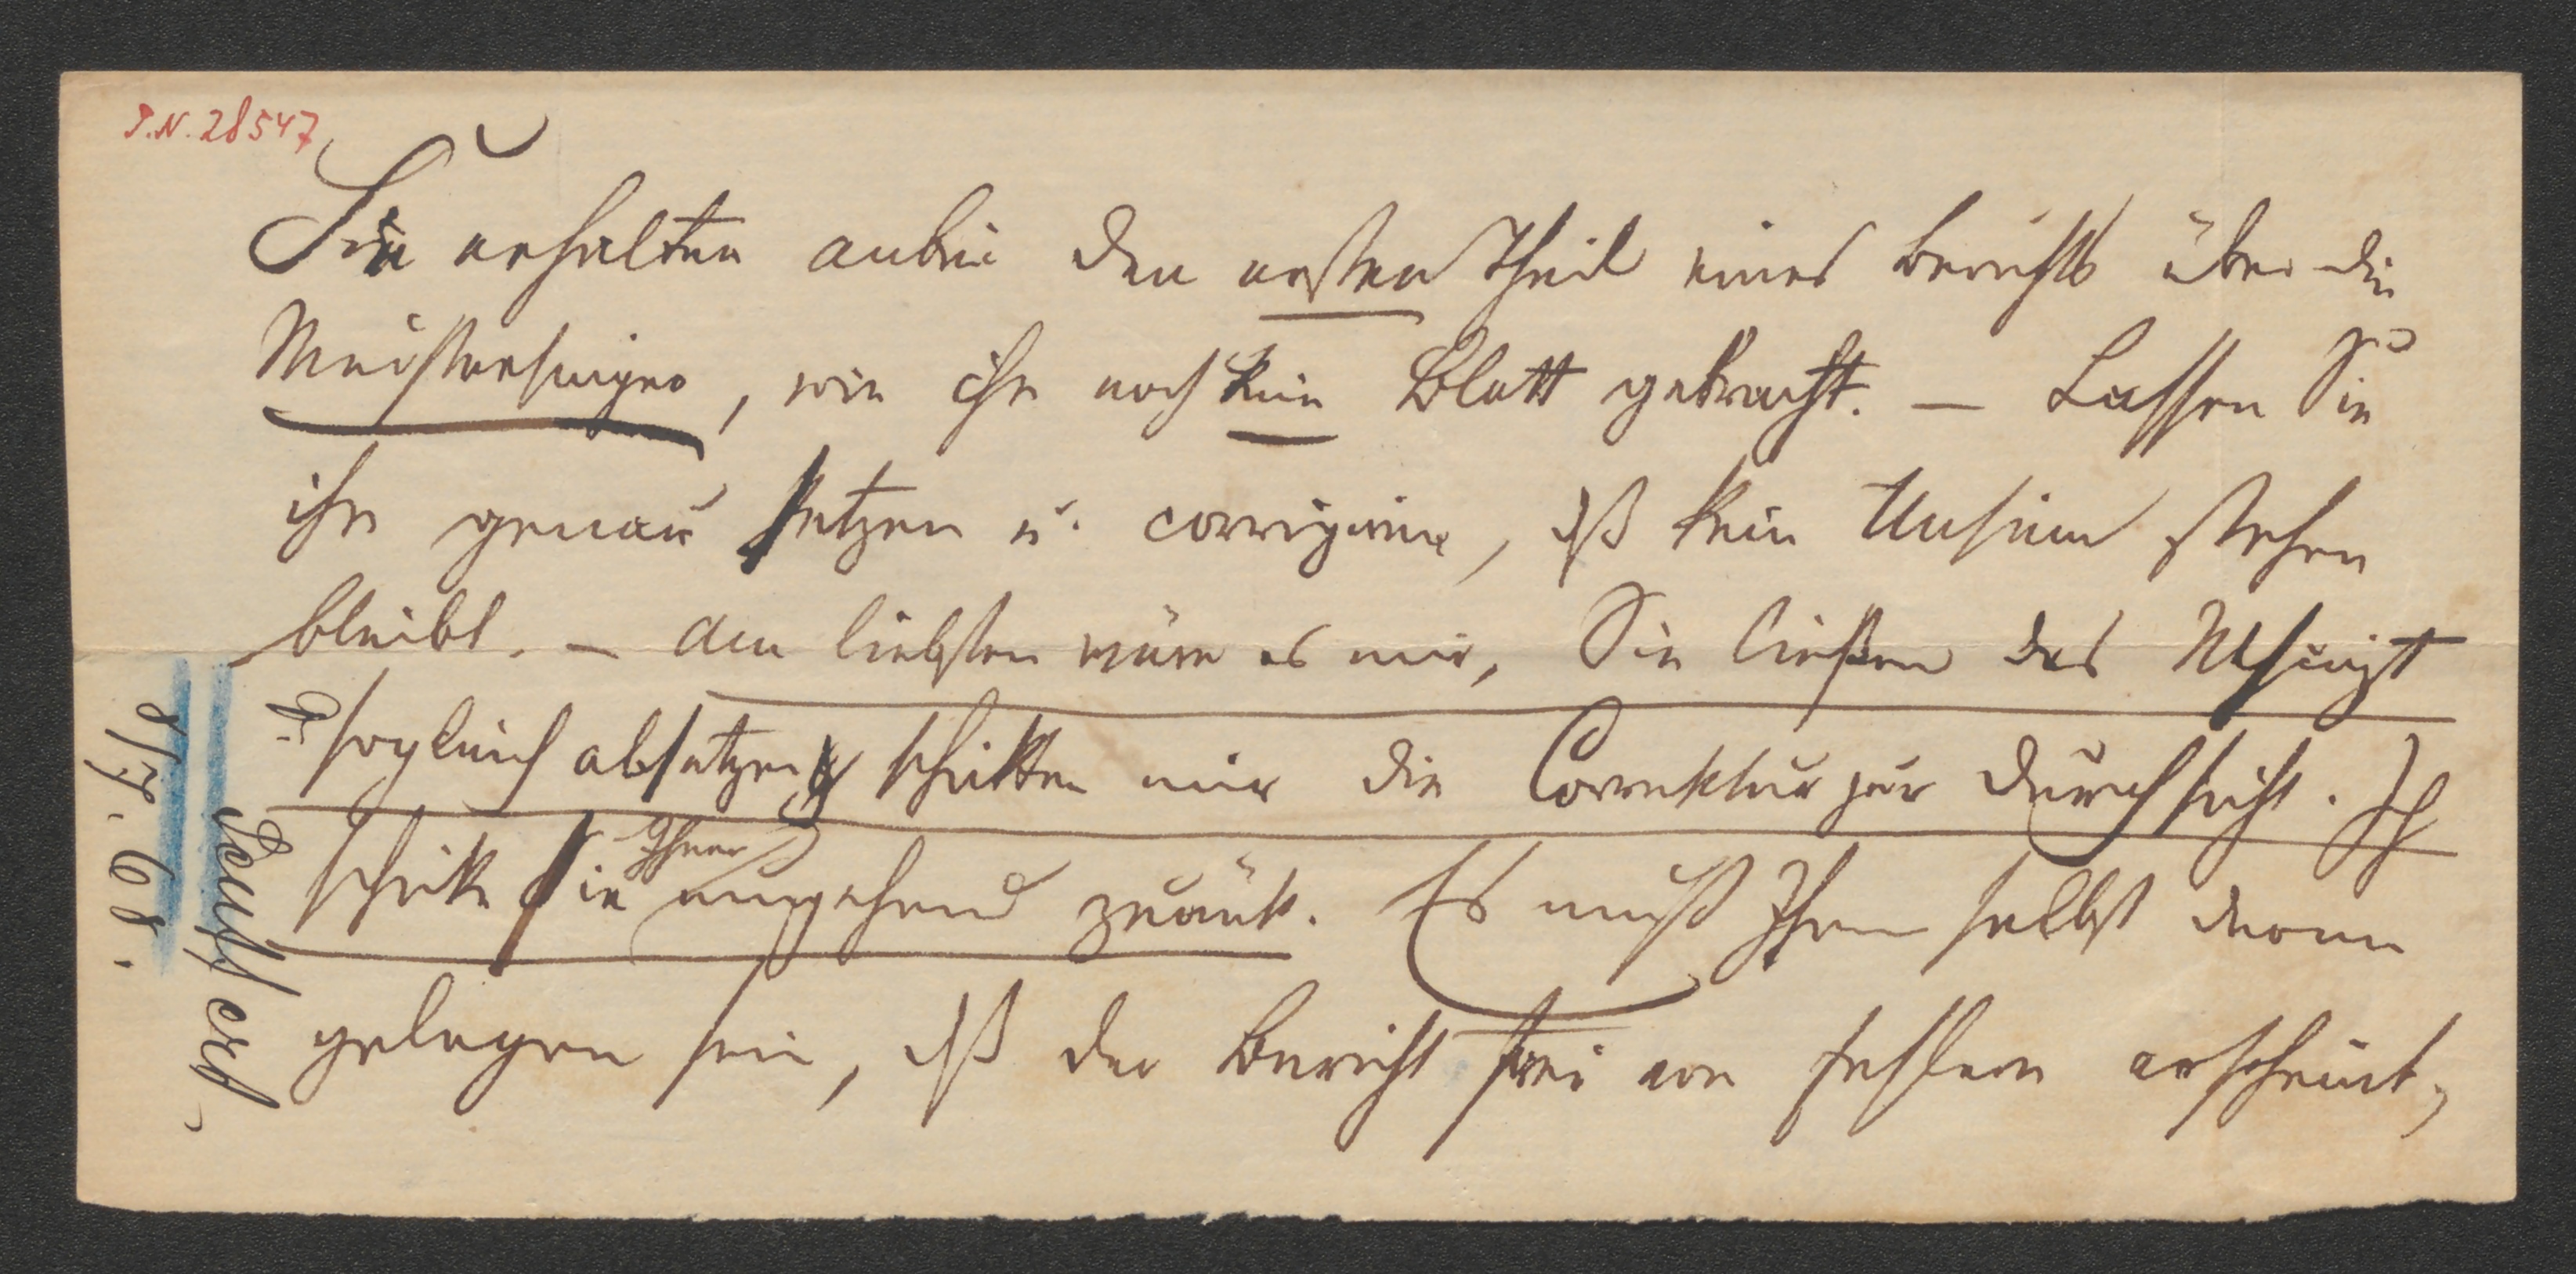 I.N. 28547
Sie erhalten anbei den ersten Theil eines Berichts über die
Meistersinger, wie ihn noch kein Blatt gebracht. — Lassen Sie
ihn genau setzen u. corrigiren, dß kein Unsinn stehen
bleibt. — Am liebsten wäre es mir, Sie ließen das Mscrpt
sogleich absetzen u. schickten mir die Correktur zur Durchsicht. Ich
schicke sie Ihnen umgehend zurück. Es muß Ihnen selbst daran
gelegen sein, dß der Bericht frei von Fehlern erscheint,
8/7. 68.